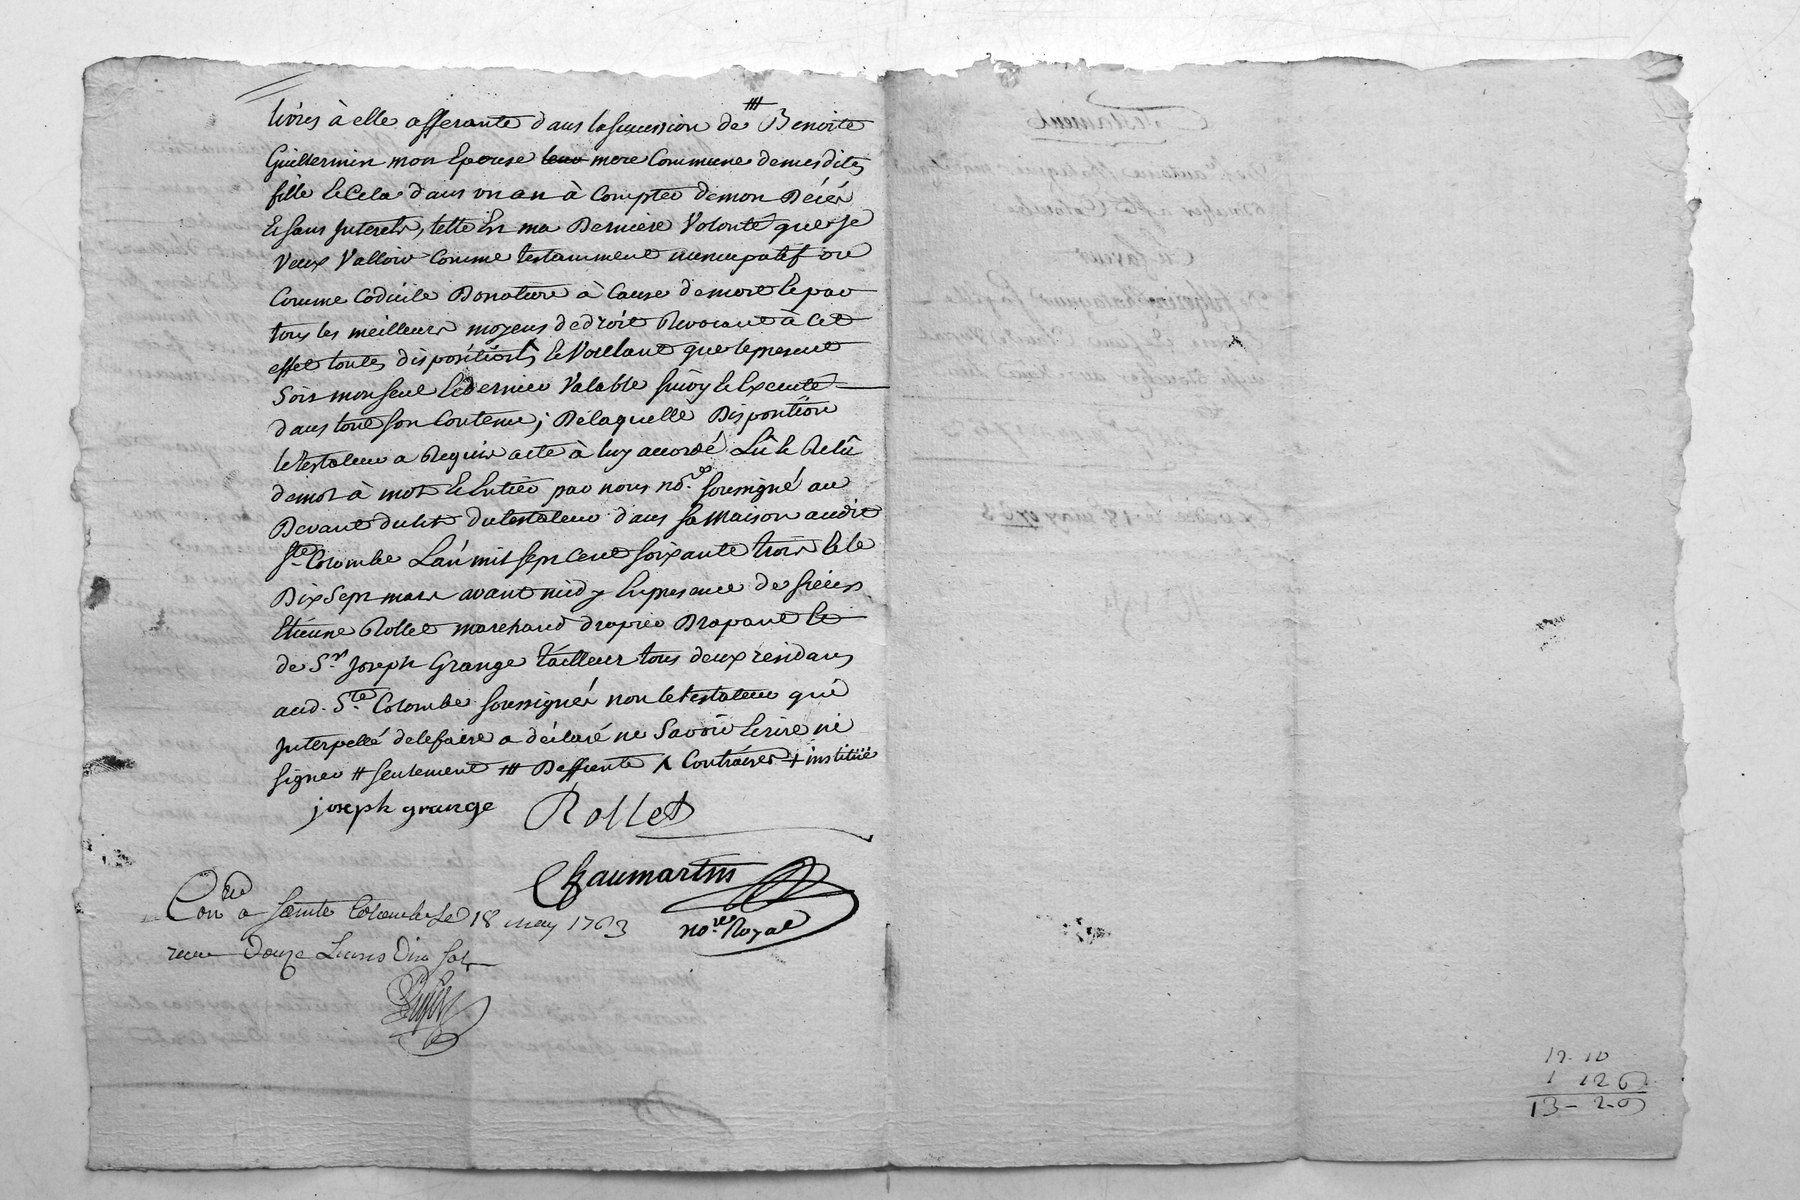 livres à elle afferante dans la succession de /// Benoite
Guillermin mon Epouse leur mere Commune de mesdites
fille Et Cela dans un an à Compter de mon Décés
Et sans Interets, telle Est ma Derniere Volonté que je
Veux Valloir Comme testamment nuncupatif ou
Comme Codicile Donation à Cause de mort Et par
tous les meilleurs moyens de droit Revocant à Cet
effet toutes dispositions ^ Et Voulant que le present
Soit mon seul Et dernier Valable suivy Et Executé
dans tout son Contenu ; De laquelle Disposition
le testateur a Requis acte à luy accordé Lû Et Relû
de mot à mot Et Entier par nous no.re soussigné au
Devant du lit du testateur dans sa Maison audit
Ste Colombe L'an mil sept cent soixante trois Et le
Dix Sept mars avant midy En presence de sieurs
Etienne Rollet marchand drapier Drapant Et
de S.r Joseph Grange tailleur tous deux residans
aud. S.te Colombe soussignés non le testateur qui
Interpellé de le faire a déclaré ne Savoir Ecrire ni
signer # seulement /// Deffunte ^ Contraires + instituë
joseph grange Rollet
Chaumartin
no.re Royal
Con.lé a Sainte Colombe le 18 may 1763
recu Douze Livres Dix sols
12 10
1 12 6
13 - 2 - 6